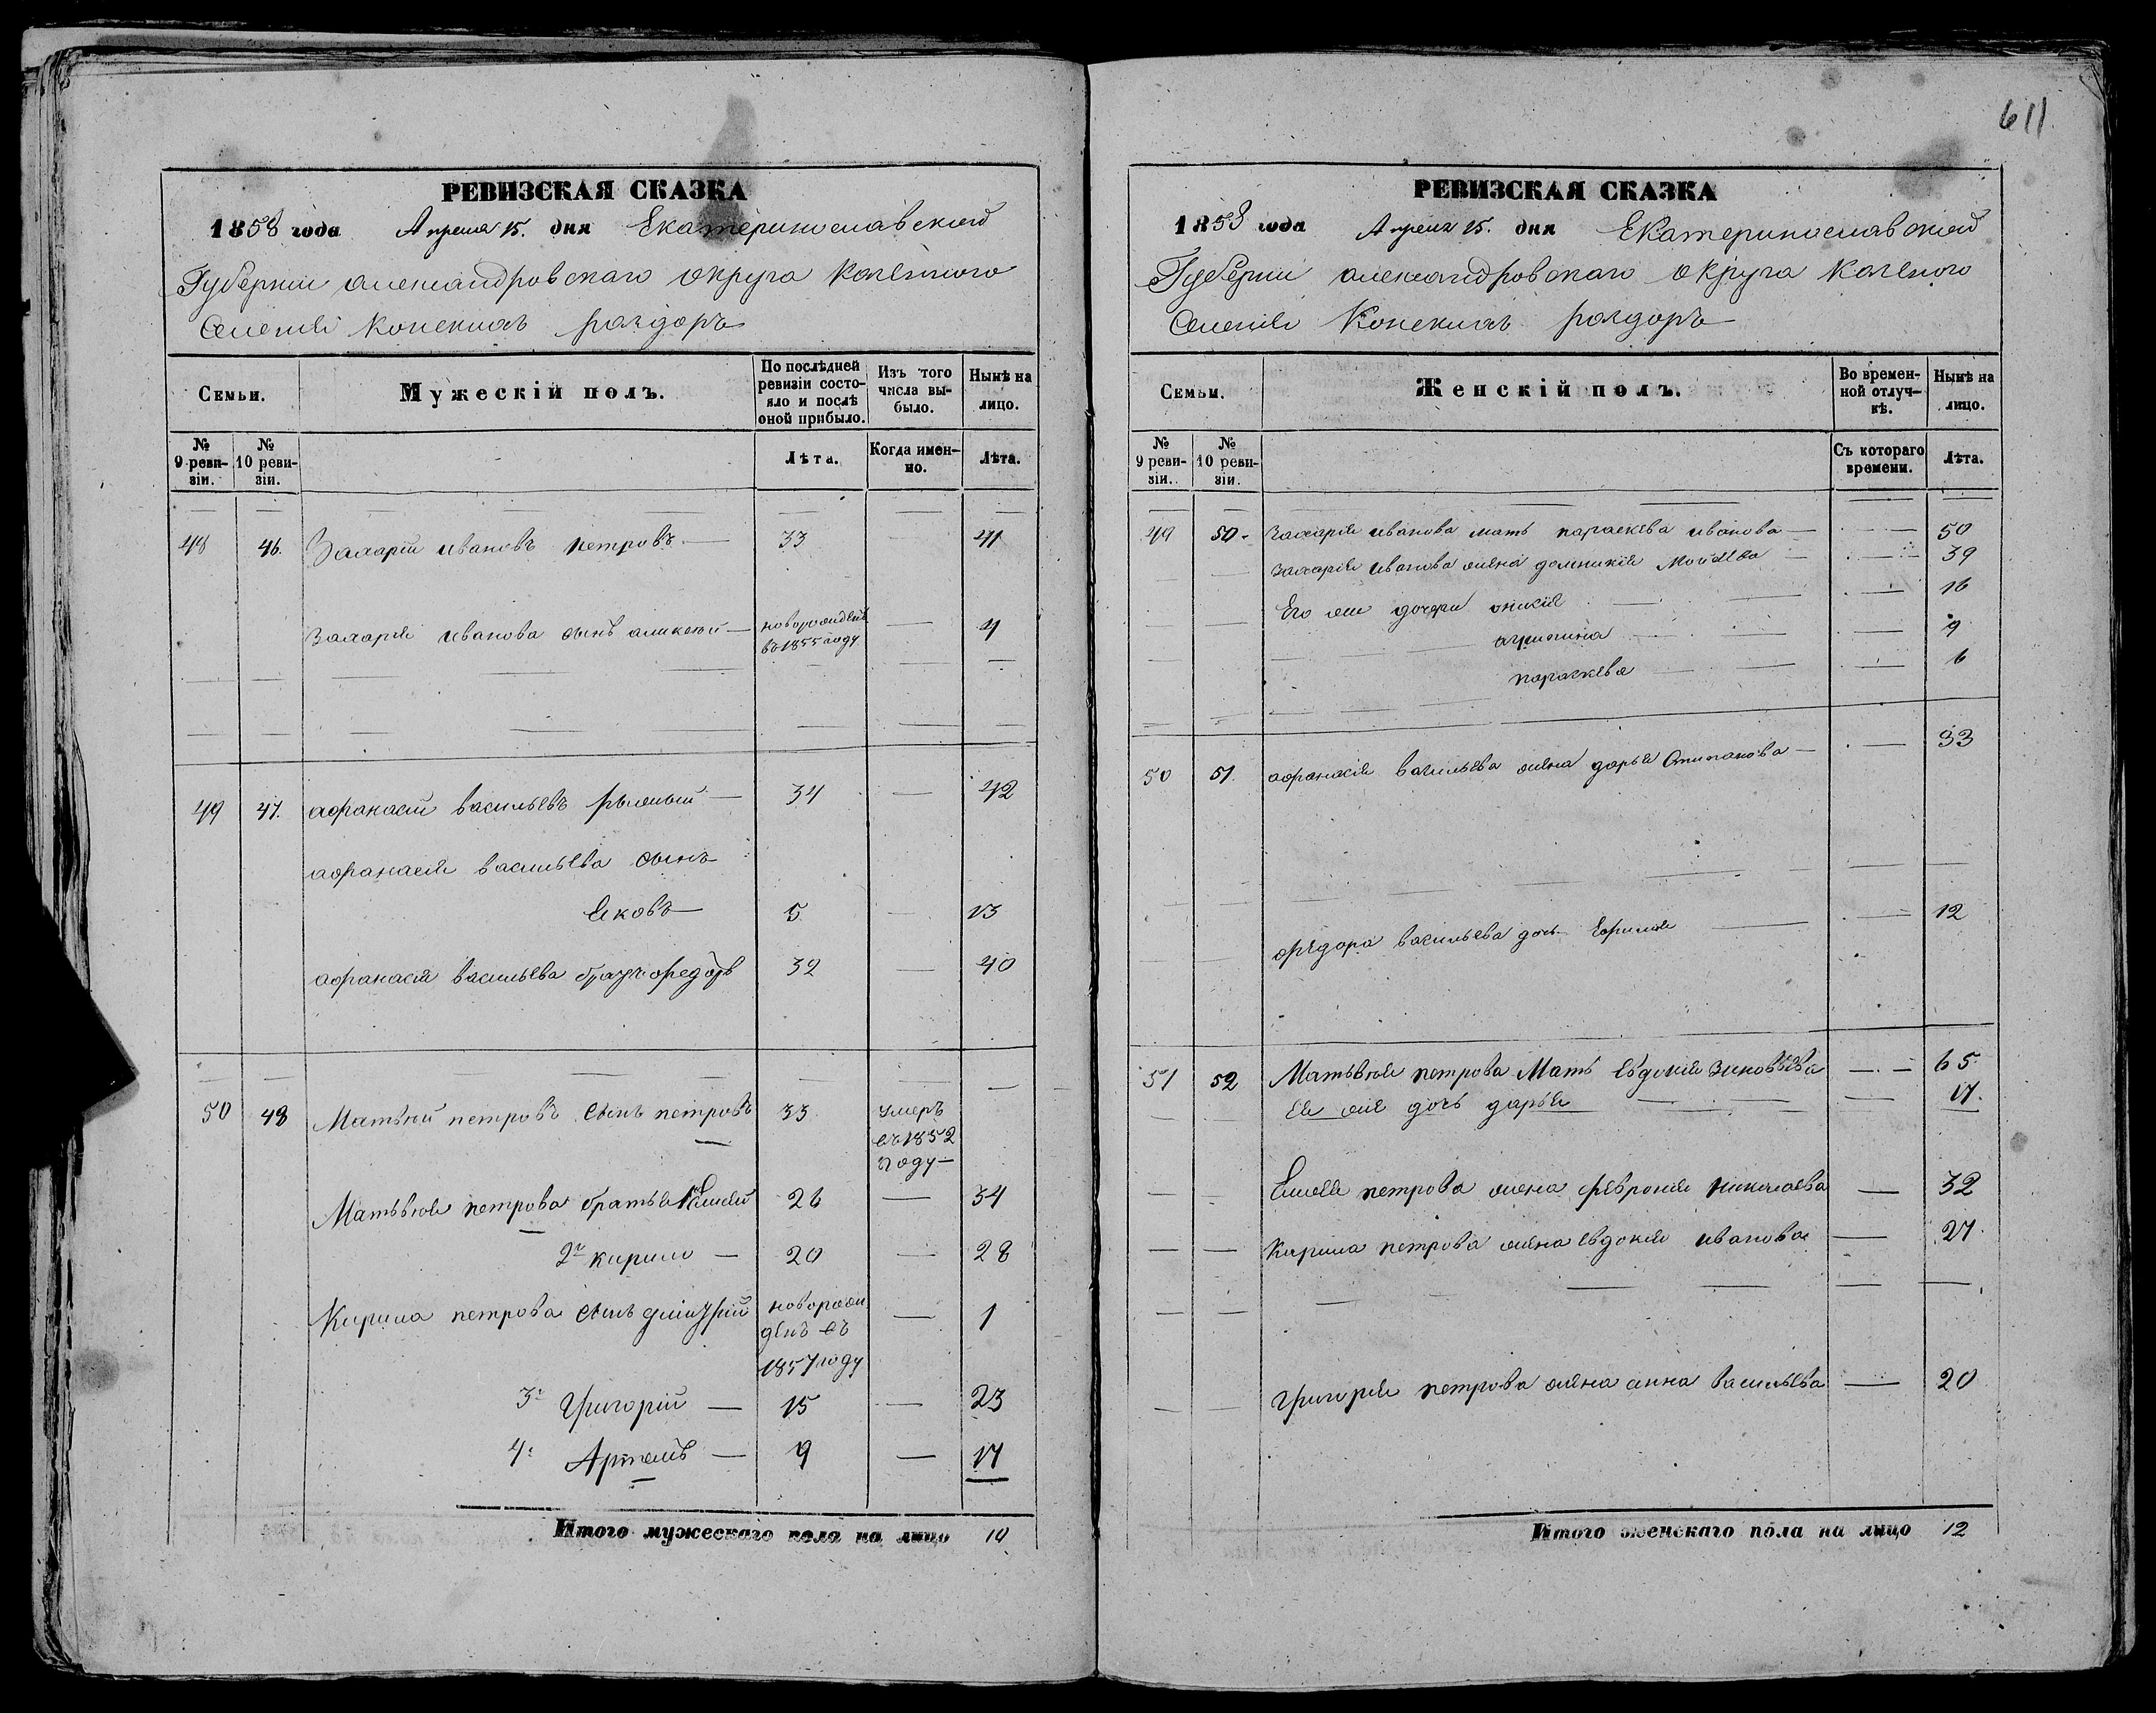 611
РЕВИЗСКАЯ СКАЗКА
1858 года Апреля 15. дня Екатеринославской
Губернии александровскаго округа казеннаго
Селенія Конскихъ раздоръ
Семьи. Мужескій полъ. По послѣдней ревизіи состояло и послѣ оной прибыло. Изъ того числа выбыло. Нынѣ на лицо.
№ 9 ревизіи. № 10 ревизіи. Лѣта. Когда именно. Лѣта.
48 46. Захарій ивановъ петровъ — 33 41
Захарія иванова сынъ алексей — новорожденъ въ 1855 году — 4
49 47. афанасій васильевъ рыжый — 34 — 42
афанасія васильева сынъ
Яковъ — 5 — 13
афанасія васильева братъ федоръ 32 — 40
50 48 Матвей петровъ сынъ петровъ 33 умеръ въ 1852 году —
Матьвея петрова братья 1й Елисей 26 — 34
2й кирило — 20 — 28
Кирила петрова сынъ дмитрій новорожденъ въ 1857 году — 1
3й Григорій — 15 — 23
4й Артемъ — 9 — 17
Итого мужескаго пола на лицо 10
РЕВИЗСКАЯ СКАЗКА
1858 года Апреля 15. дня Екатеринославской
Губерніи александровскаго округа казеного
Селенія Конскихъ раздоръ
Семьи. Женскій полъ. Во временной отлучкѣ. Нынѣ на лицо.
№ 9 ревизіи. № 10 ревизіи. Съ котораго времени. Лѣта.
49 50. Захарія иванова мать параскева иванова — 50
Захарія иванова жена домникія Моисеева — 39
Его же дочери 16
9
параскева — 6
50 51. афанасія васильева жена дарья Степанова — 33
федора васильева дочь Ефимія — 12
51 52 Матьвея петрова Мать Евдокія Зиновьева — 65
Ея же дочь дарья — 17.
Елисея петрова жена феврония николаева — 32
Кирила петрова жена евдокия иванова — 27.
григорія петрова жена анна васильева — 20
Итого женскаго пола на лицо 12